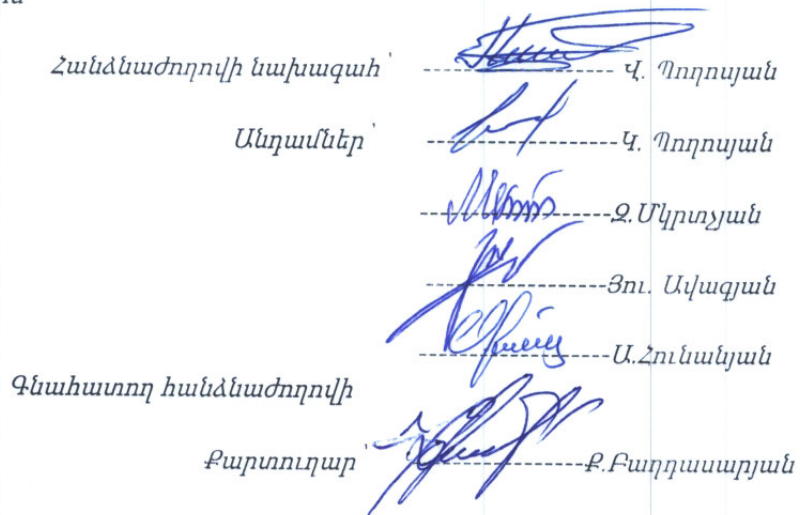 Հանձնաժողովի նախագահ՝ ---------------- Վ. Պողոսյան
Անդամներ՝ ----------------Կ. Պողոսյան
----------------Զ.Մկրտչյան
----------------Յու. Ավագյան
----------------Ա.Հունանյան
Գնահատող հանձնաժողովի
Քարտուղար՝ ----------------Ք.Բաղդասարյան